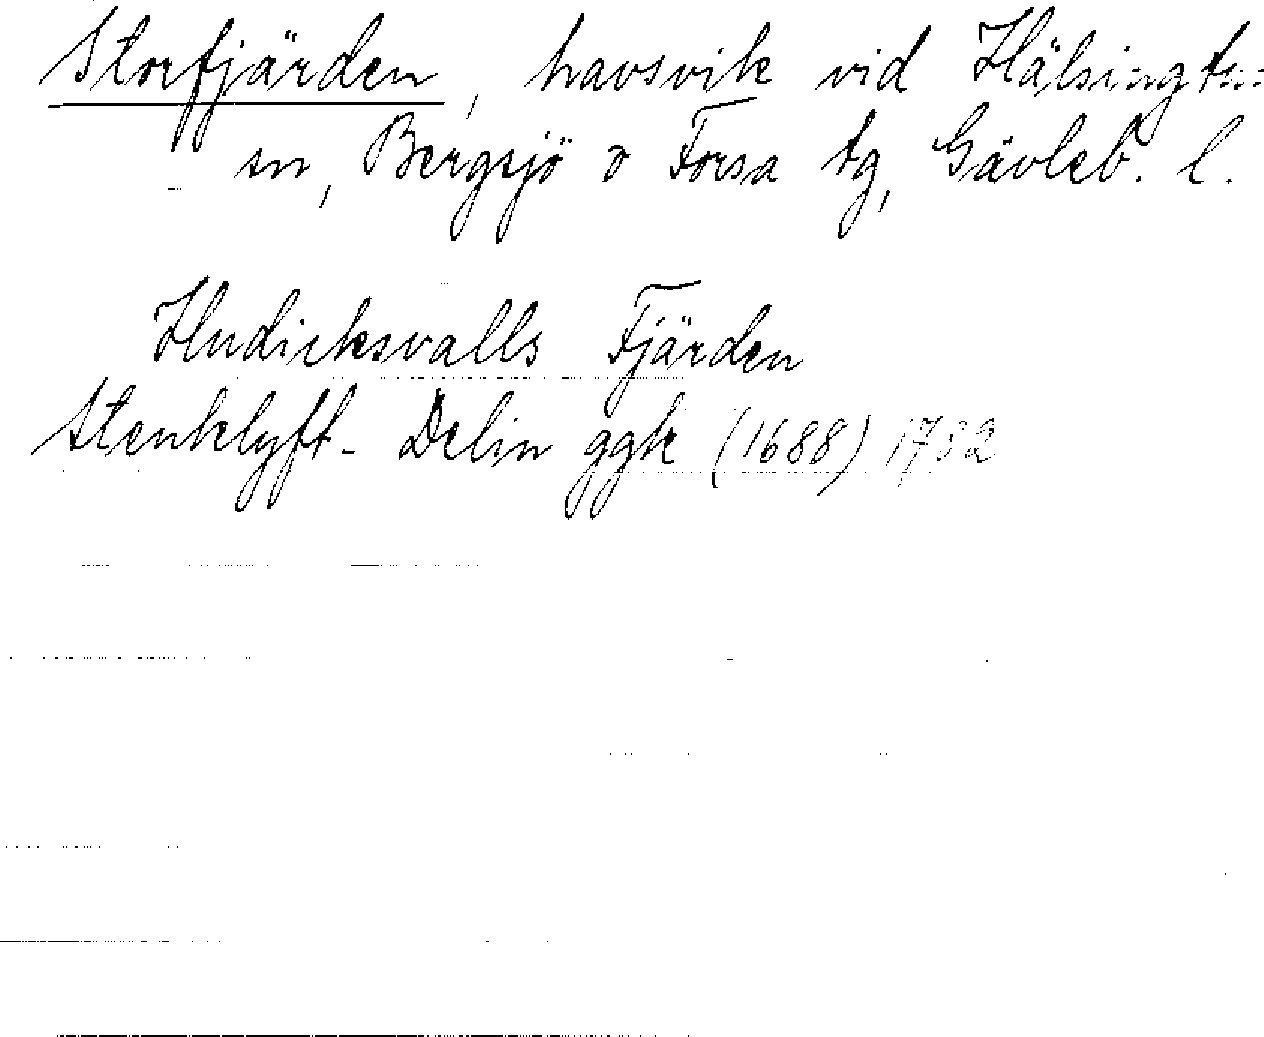 Storfjärden, havsvik vid Hälsingtuna
sn, Bergsjö o Forsa tg, Gävleb. l.
Hudicksvalls Fjärden
Stenklyft-Delin ggk (1688) 1732